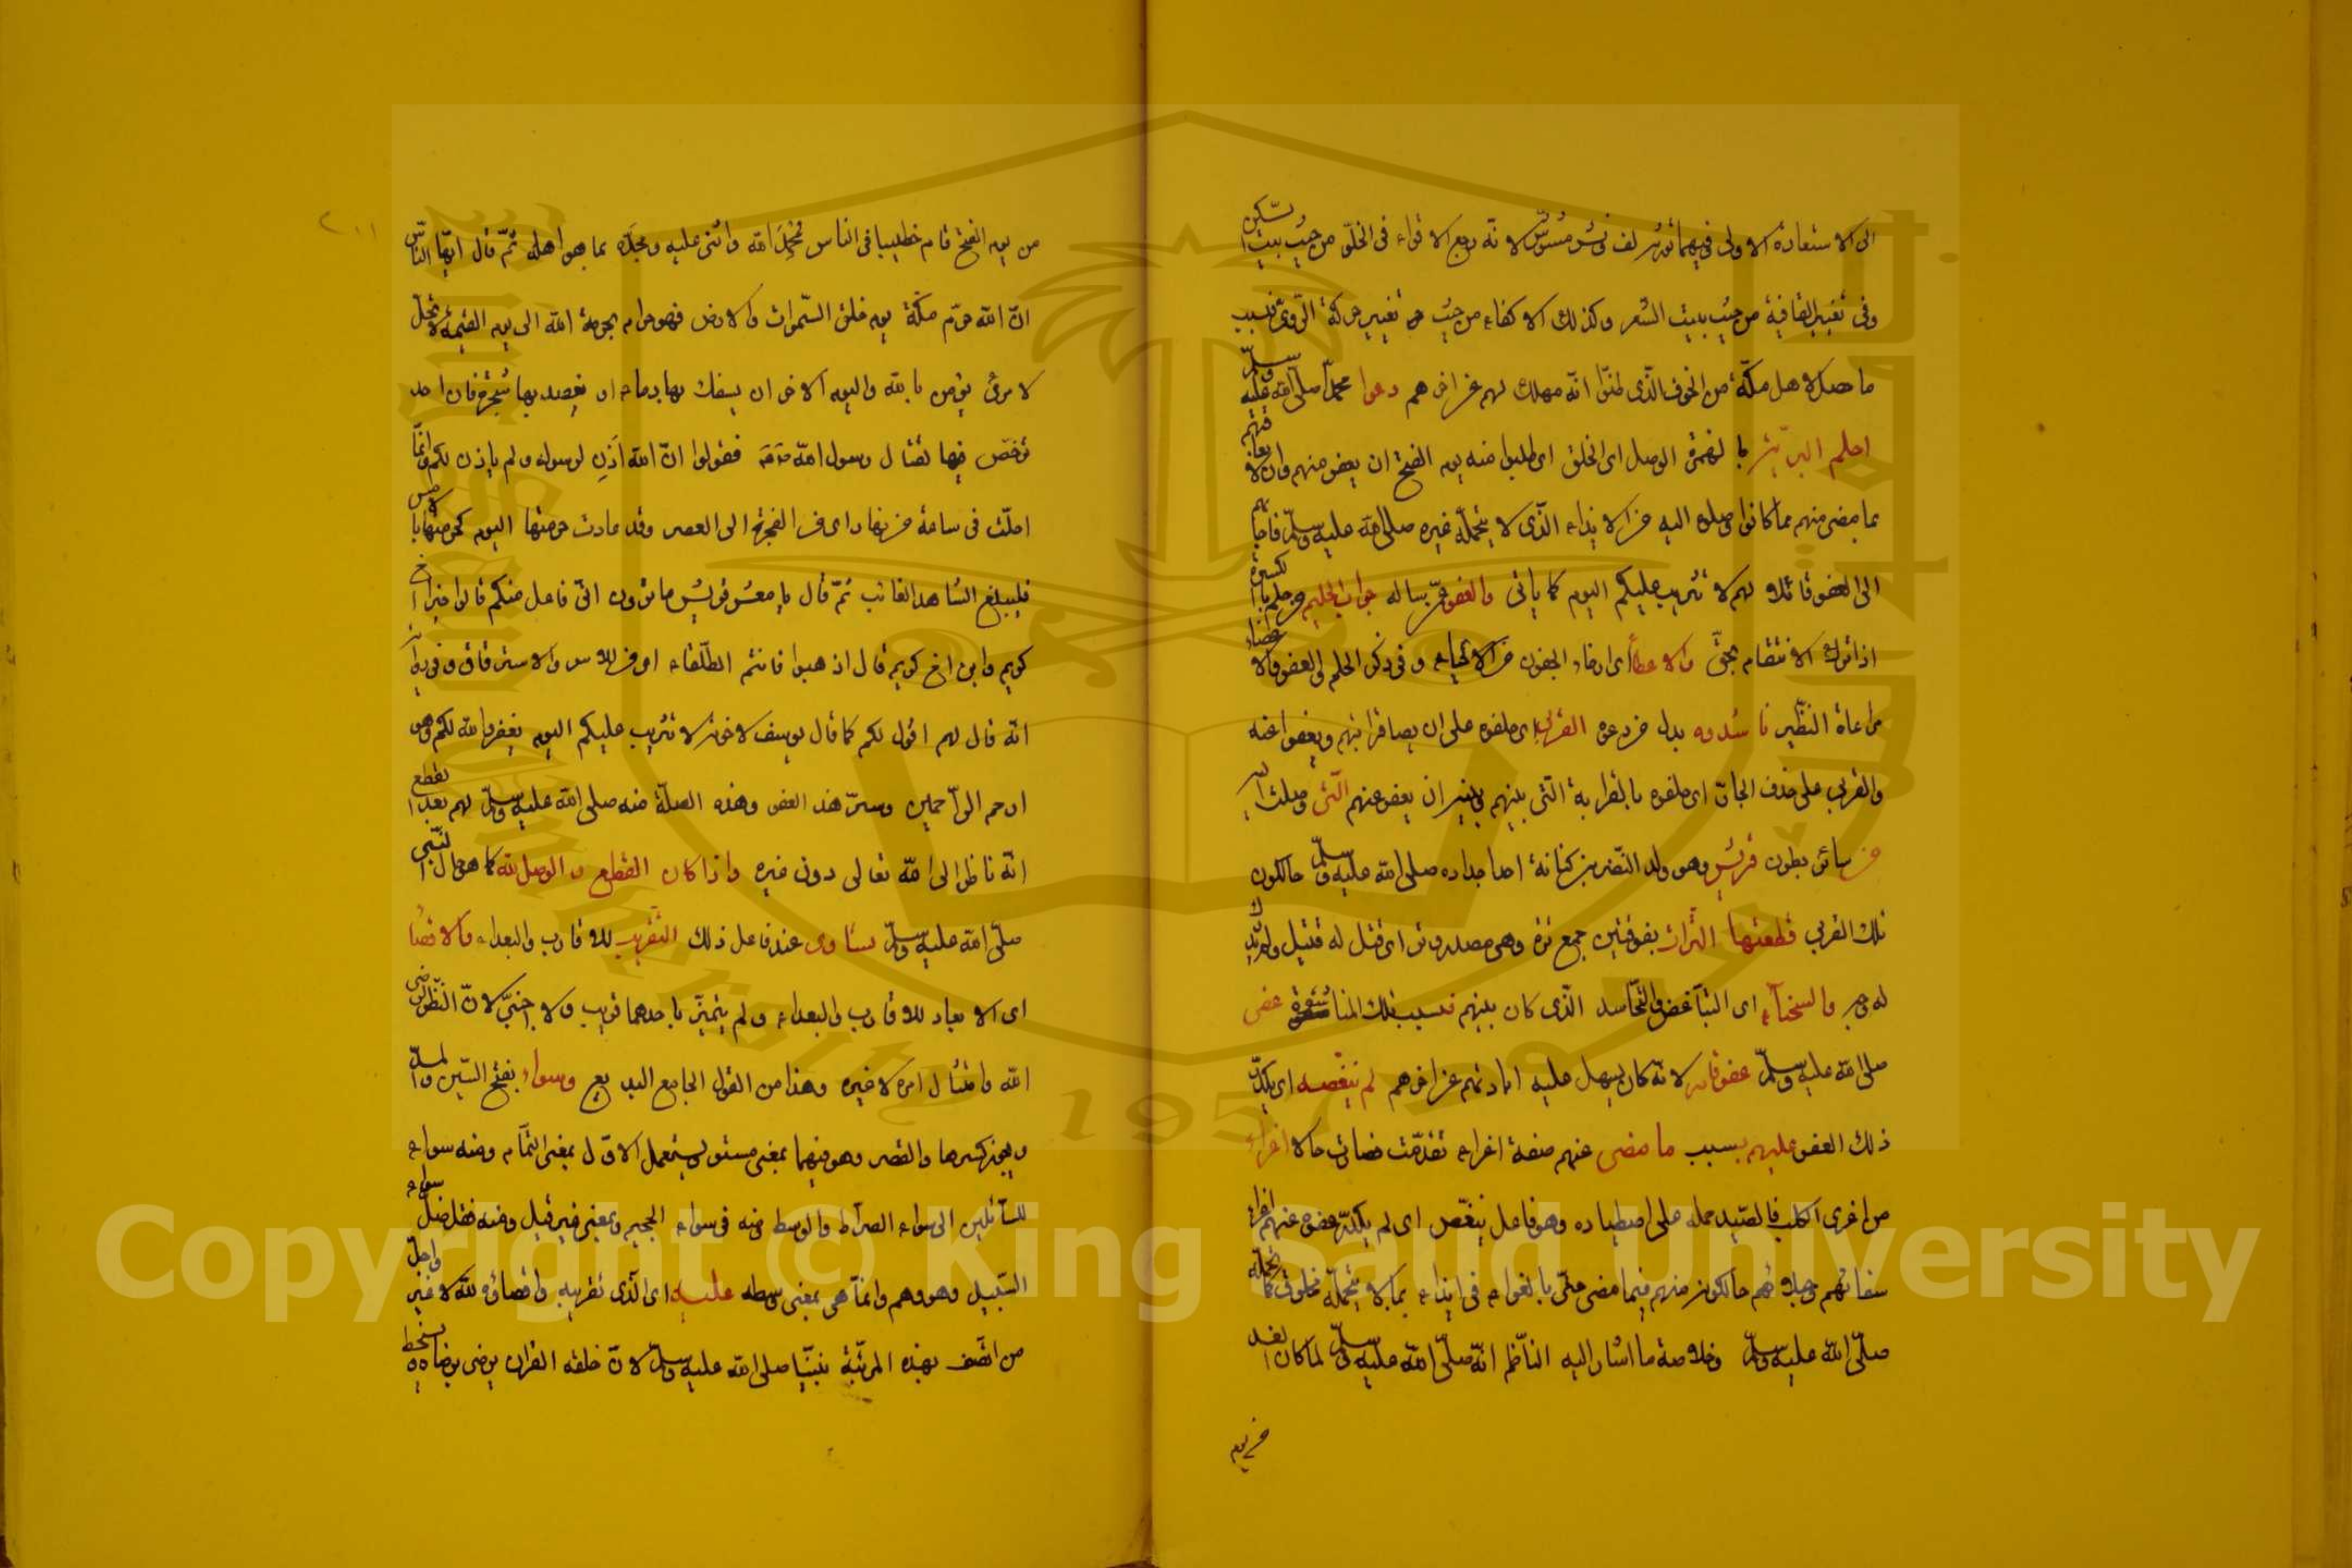 الى الاستعارة الاولى فيهما تورية لف ونشر مشوش لانه رجع الاقواء فى الخلق من حيث بيت السكن
وفى تغيير القافية من حيث بيت الشعر وكذلك الاكفاء من حيث تغيير حركة الروى فبسبب
ما حصل لاهل مكة من الخوف الذى ظنوا انه مهلك لهم عن اخرهم دعوا محمدا صلى الله عليه وسلم
احلم البرية بالهمزة الاصل اى الخلق اى طلبوا منه يوم الفتح ان يعفو عنهم وان لا يعاقبهم
بما مضى منهم مما كانوا وصلوه اليه من الايذاء الذى لا يتحمله غيره صلى الله عليه وسلم فاجابهم
الى العفو قائلا لهم لا تثريب عليكم اليوم كما ياتى والعفو عمن ساله جواب الحليم من حلم بالكسرة
اذا ترك الانتقام بحق والاغضاء اى ارخاء الجفون من الاحياء وفى ذكر الحلم والعفو والاغضاء
مراعاة النظير ناشدوه بدل من دعوه القربى اى حلفوه على ان يصافى اقرانهم ويعفوا عنه
والقربى على حذف الجار اى حلفوه بالقرابة التى بينهم وبينه ان يعفو عنهم التى وصلت اليه
من سائر بطون قريش وهو ولد النضر بن كنانة احد اجداده صلى الله عليه وسلم حال كون
تلك القربى قطعتها الترات بفوقيتين جمع ترة وهى مصدر وتر اى قتل له قتيل ولم يدرك
له دم والشحناء اى التباغض والتحاسد الذى كان بينهم فبسبب تلك المناشدة عفى
صلى الله عليه وسلم عفو قادر لانه كان يسهل عليه ابادتهم عن اخرهم لم ينغصه اى يكدر
ذلك العفو عليهم بسبب ما مضى عنهم صفة اغراء تقدمت فصارت حالا اغراء
من اغرى الكلب فالصيد حمله على اصطياده وهو فاعل ينغص اى لم يكدر عفوه عنهم اغراء
سفائهم وجهلائهم حال كونه منهم فيما مضى حتى بالغوا فى ايذائه بما لا يتحمله مخلوق فحمله
صلى الله عليه وسلم وخلاصة ما اشار اليه الناظم انه صلى الله عليه وسلم لما كان الغد
من يوم
من يوم الفتح قام خطيبا فى الناس فحمد الله واثنى عليه ومجده بما هو اهله ثم قال ايها الناس
ان الله حرم مكة يوم خلق السموات والارض فهو حرام بحرمة الله الى يوم القيمة لا يحل
لامرئ يؤمن بالله واليوم الاخر ان يسفك بها دما او يعضد بها شجرة فان احد
ترخص فيها لقتال رسول الله صلعم فقولوا ان الله اذن لرسوله ولم ياذن لكم وانما
احلت لى ساعة من نهار اى من الفجر الى العصر وقد عادت حرمتها اليوم كحرمتها بالامس
فليبلغ الشاهد الغائب ثم قال يا معشر قريش ما ترون انى فاعل منكم قالوا خيرا اخ
كريم وابن اخ كريم قال اذهبوا فانتم الطلقاء اى من الاسر والاسترقاق وفى رواية
انه قال لهم اقول لكم كما قال يوسف لاخوته لا تثريب عليكم اليوم يغفر الله لكم وهو
ارحم الراحمين وسر هذا العفو وهذه الصلة منه صلى الله عليه وسلم لهم بعد القطع
انه ناظر الى الله تعالى دون غيره واذا كان القطع والوصل لله كما هو حال النبى
صلى الله عليه وسلم تساوى عند فاعل ذلك التقريب للاقارب والبعداء والاقصاء
اى الابعاد للاقارب والبعداء ولم يتميز باحدهما قريب ولا اجنبى لان النظر لرضى
الله وامتثال امره لا غيره وهذا من القول الجامع البديع وسواء بفتح السين والمد
ويجوز كسرها والقصر وهو فيهما بمعنى مستو ويستعمل الاول بمعنى التمام ومنه سواء
للسائلين الى سواء الصراط والوسط منه فى سواء الجحيم وبمعنى غير قيل ومنه فقد ضل سواء
السبيل وهو وهم وانما هى بمعنى وسطه عليه اى الذى تقريبه واقصاؤه لله لا غير واجل
من اتصف بهذه المرتبة نبينا صلى الله عليه وسلم لان خلقه القران يرضى برضاه ويسخط